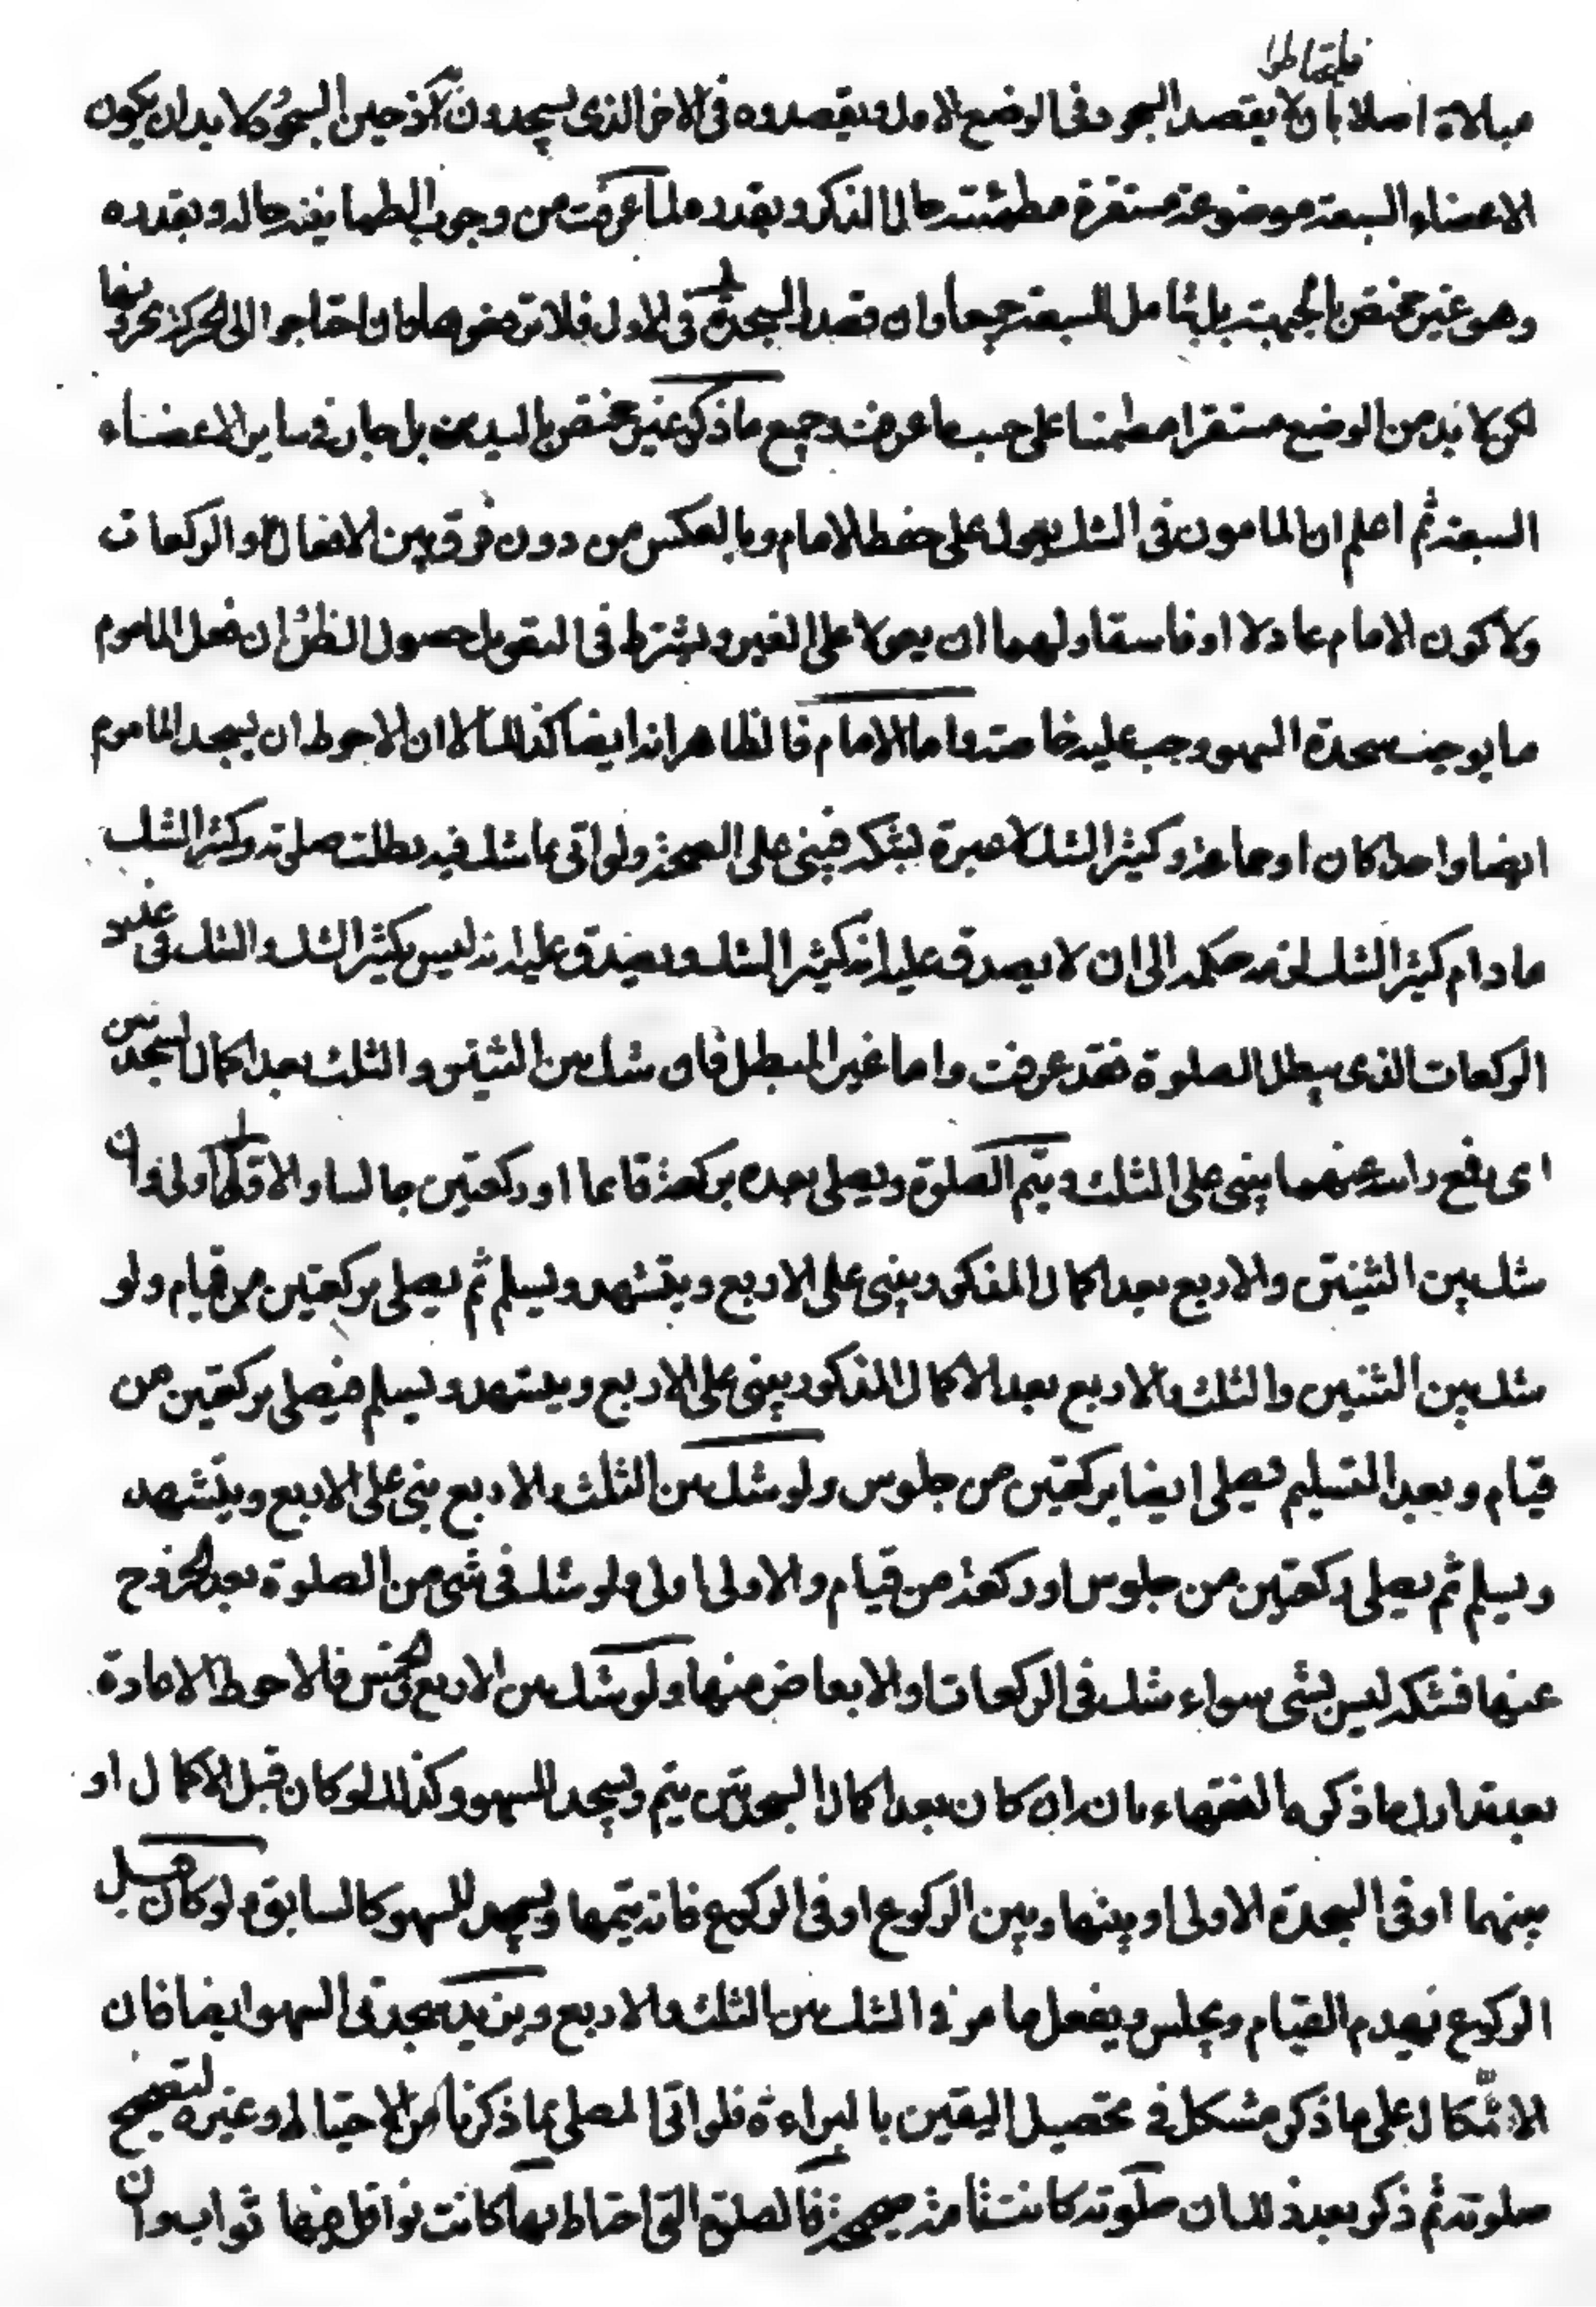 فليحتاطوا
مبالاة اصلا بان لا يقصد السجود في الوضع الاول ويقصدوه في الاخر الذي يسجدون ثم حين السجود لا بد ان يكون
الاعضاء السبعة موضوعة مستقرة مطمئنة حال الذكر وبقدره لما عرفت من وجوب الطمانينة حاله وبقدره
وهو غير مختص بالجبهة بل شامل للسبعة جميعا وان قصد السجدة في الاول فلا ترفعوها وان احتاجوا الى الحركة جروها
لكن لا بد من الوضع مستقرا مطمئنا على حسب ما عرفت وجميع ما ذكر غير مختص باليدين بل جار في ساير الاعضاء
السبعة ثم اعلم ان المامون في الشك يعول على حفظ الامام وبالعكس من دون فرق بين الافعال والركعات
ولا كون الامام عادلا او فاسقا ولهما ان يعولا على الغير ويشترط في التعويل حصول الظن ان فعل الماموم
ما يوجب سجدة السهو وجب عليه خاصة واما الامام فالظاهر انه ايضا كذلك الا ان الاحوط ان يسجد الماموم
ايضا واحدا كان او جماعة وكثير الشك لا عبرة بشكه فيبني على الصحة ولو اتى بما شك فيه بطلت صلوته وكثير الشك
ما دام كثير الشك لزمه حكمه الى ان لا يصدق عليه انه كثير الشك ويصدق عليه انه ليس بكثير الشك والشك في عدد
الركعات الذي يبطل الصلوة فقد عرفت واما غير المبطل فان شك بين الثنتين والثلث بعد اكمال السجدتين
اي رفع راسه عنهما يبني على الثلث ويتم الصلوة ويصلي بعده بركعة قائما او ركعتين جالسا والاول اولى وان
شك بين الثنتين والاربع بعد اكمال المذكور يبني على الاربع ويتشهد ويسلم ثم يصلي بركعتين من قيام ولو
شك بين الثنتين والثلث والاربع بعد الاكمال المذكور يبني على الاربع ويتشهد ويسلم فيصلي بركعتين من
قيام وبعد التسليم يصلي ايضا بركعتين من جلوس ولو شك بين الثلث والاربع بنى على الاربع ويتشهد
ويسلم ثم يصلي ركعتين من جلوس او ركعة من قيام والاولى اولى ولو شك في شئ من الصلوة بعد الخروج
عنها فشكه ليس بشئ سواء شك في الركعات او الابعاض منها ولو شك بين الاربع والخمس فالاحوط الاعادة
بعد تدارك ما ذكره الفقهاء بانه ان كان بعد اكمال السجدتين يتم ويسجد للسهو وكذلك لو كان قبل الاكمال او
بينهما او في السجدة الاولى او بينها وبين الركوع او في الركوع فانه يتمها ويسجد للسهو كالسابق ولو كان قبل
الركوع يهدم القيام ويجلس ويفعل ما مر في الشك بين الثلث والاربع ويزيد سجدتي السهو ايضا فان
الاشكال على ما ذكر مشكل في تحصيل اليقين بالبراءة فلو اتى المصلي بما ذكرنا من الاحتياط وغيره لتصحيح
صلوته ثم ذكر بعد ذلك ان صلوته كانت تامة صحيحة فالصلوة التي احتاط بها كانت نوافل فيها ثواب وان